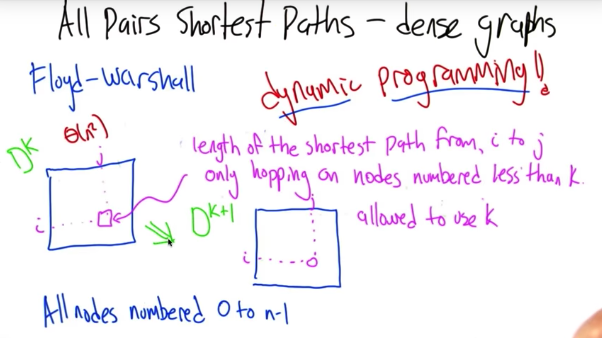 All Pairs Shortest Paths – dense graphs
Floyd-Warshall
dynamic programming!
Θ(n²)
D^k
length of the shortest path from i to j
only hopping on nodes numbered less than k.
i
D^k+1
j
allowed to use k
i
All nodes numbered 0 to n-1